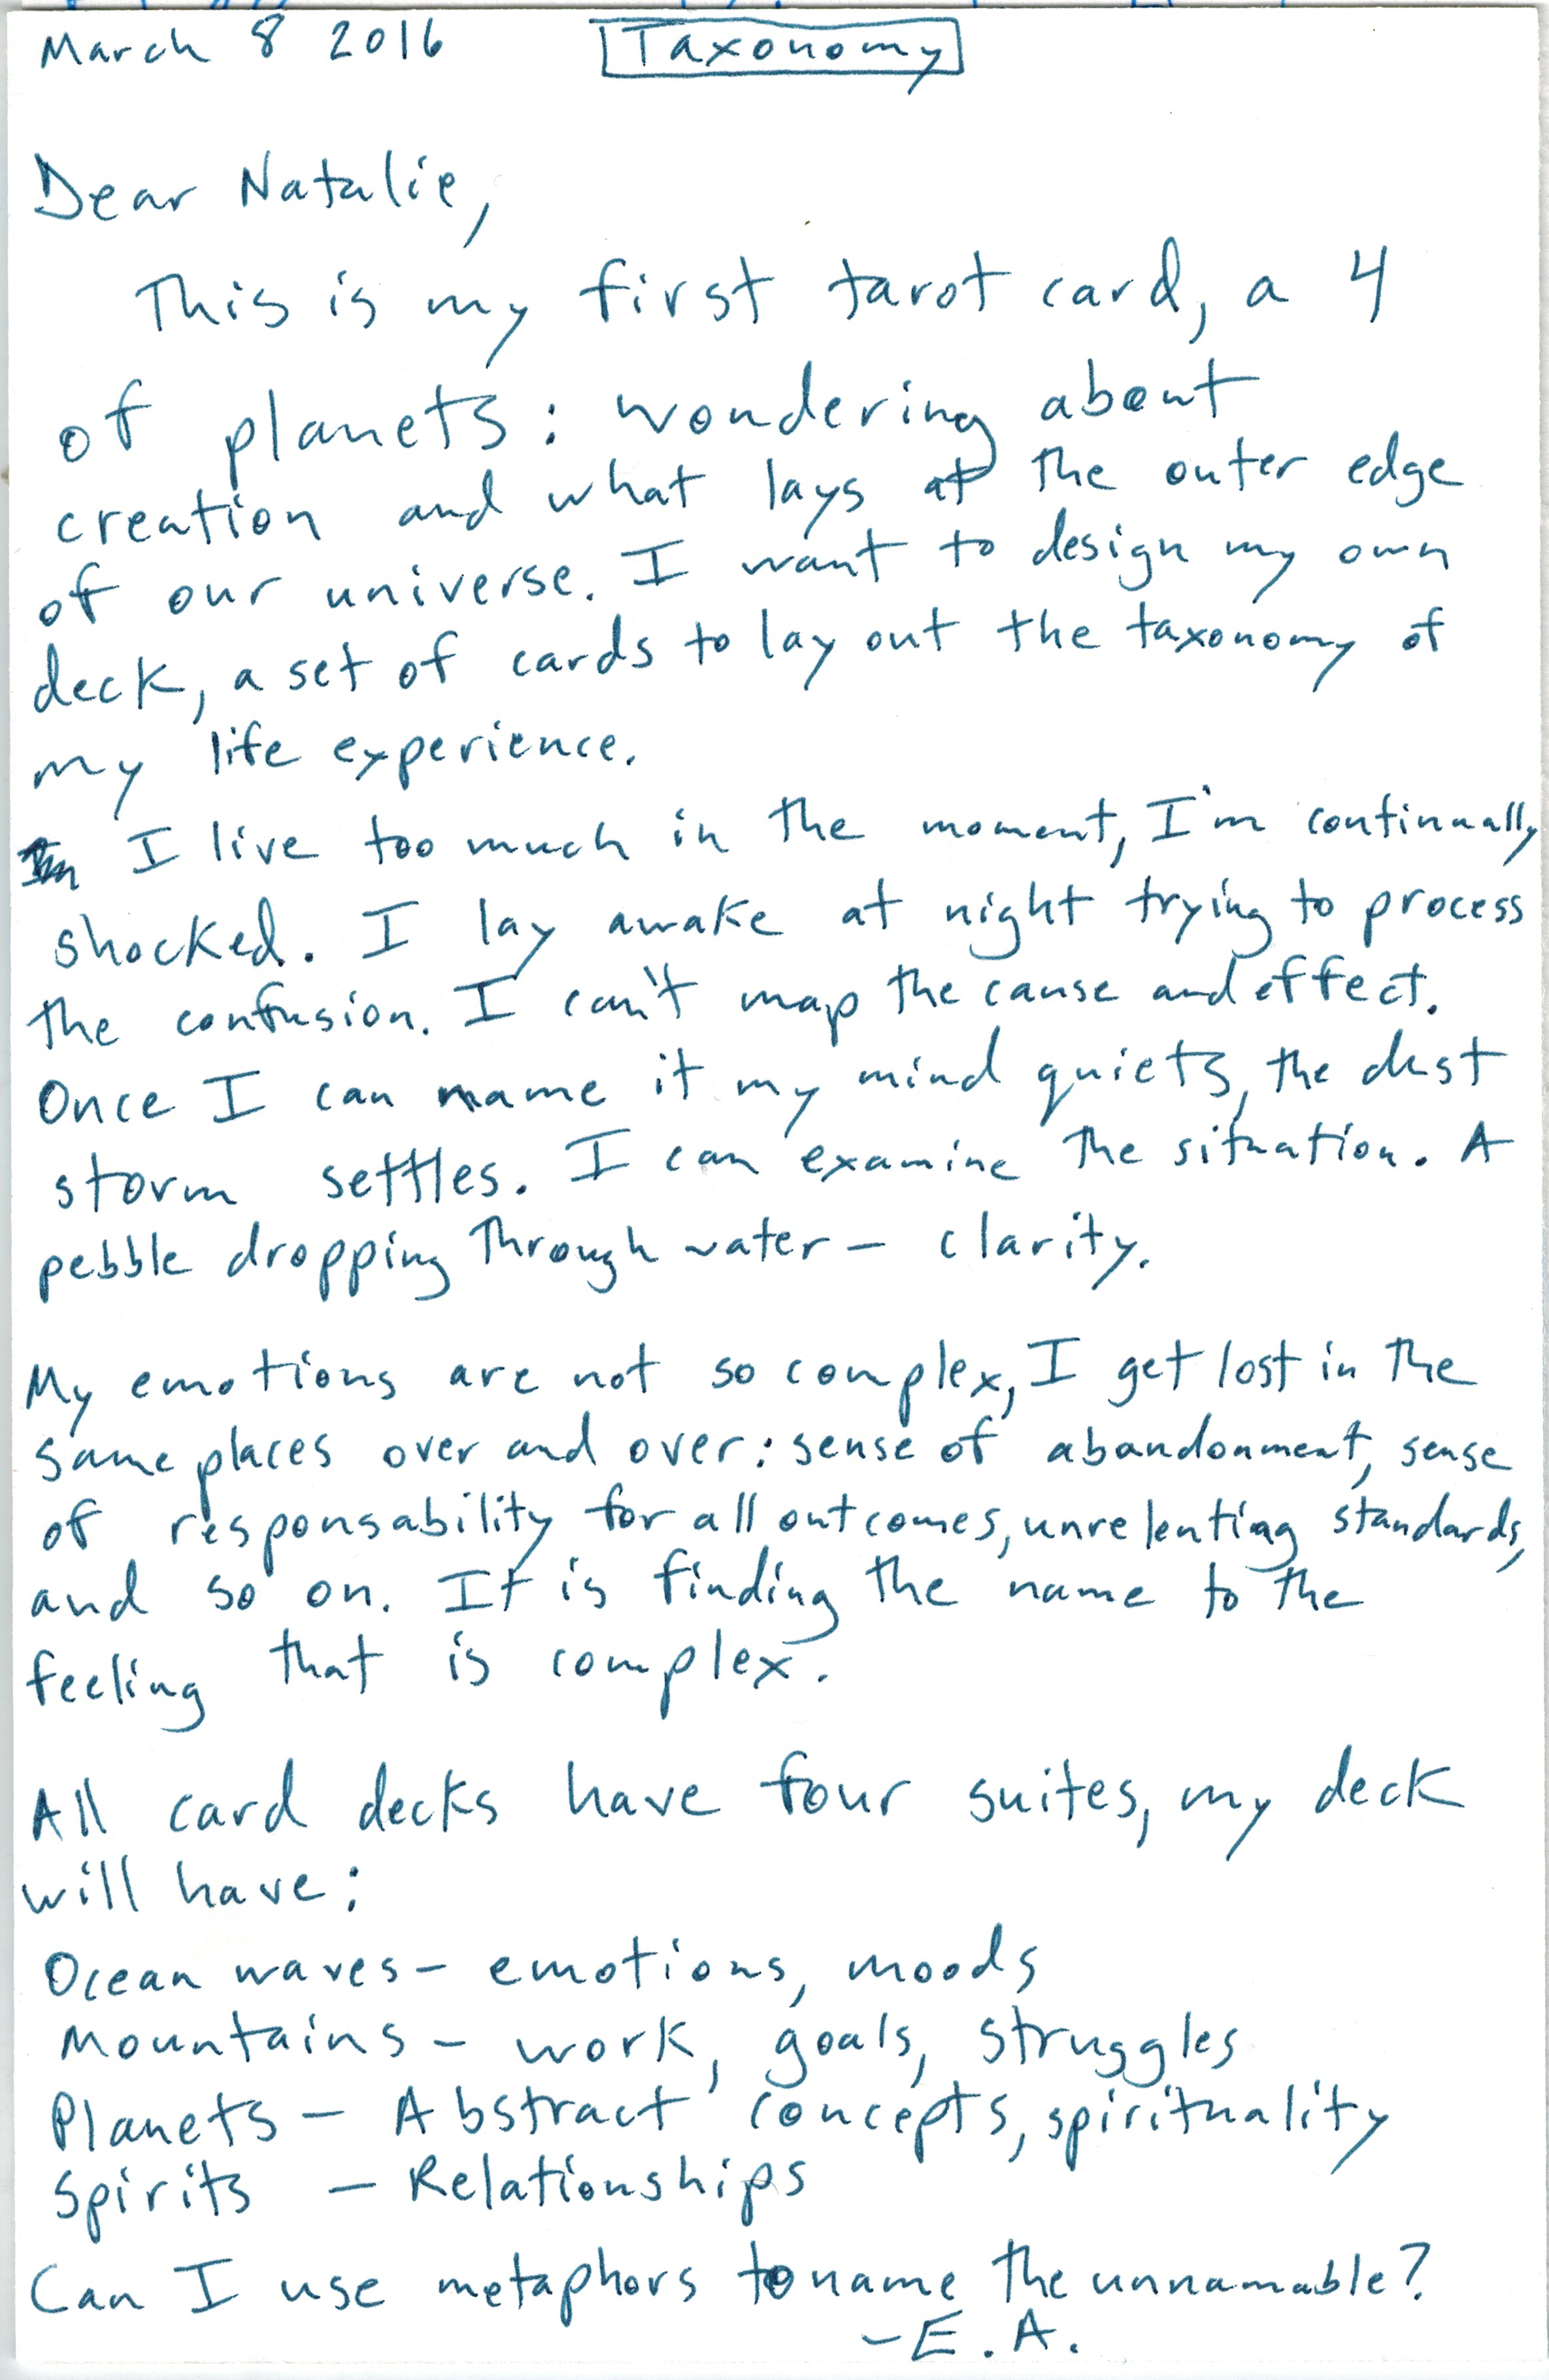 March 8 2016 Taxonomy
Dear Natalie,
This is my first tarot card, a 4
of planets: wondering about
creation and what lays at the outer edge
of our universe. I want to design my own
deck, a set of cards to lay out the taxonomy of
my life experience.
I live too much in the moment, I'm continually
shocked. I lay awake at night trying to process
the confusion. I can't map the cause and effect.
Once I can name it my mind quiets, the dust
storm settles. I can examine the situation. A
pebble dropping through water – clarity.
My emotions are not so complex, I get lost in the
same places over and over: sense of abandonment, sense
of responsability for all outcomes, unrelenting standards,
and so on. It is finding the name to the
feeling that is complex.
All card decks have four suites, my deck
will have:
Ocean waves – emotions, moods
Mountains – work, goals, struggles
Planets – Abstract concepts, spirituality
Spirits – Relationships
Can I use metaphors to name the unnamable?
– E. A.